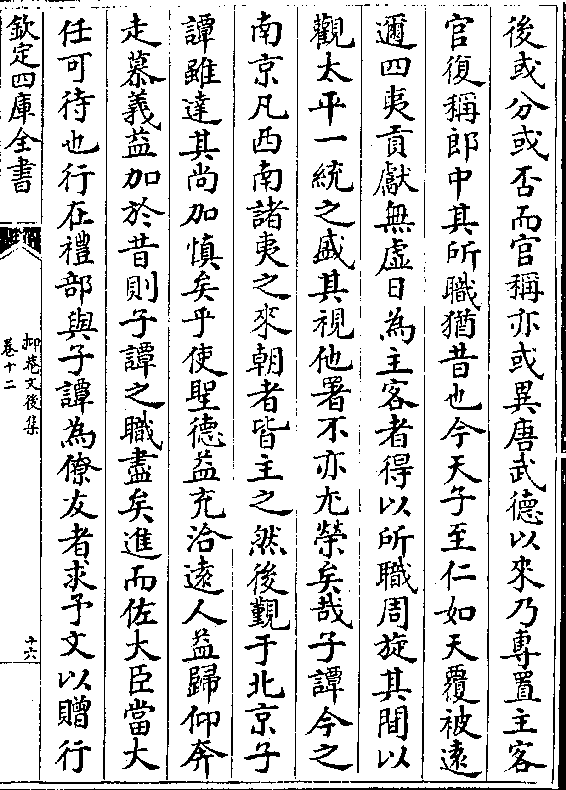 後或分或否而官稱亦或異唐武德以來乃專置主客
官復稱郎中其所職猶昔也今天子至仁如天覆被遠
邇四夷貢獻無虛日為主客者得以所職周旋其間以
觀太平一統之盛其視他署不亦尤榮矣哉子譚今之
南京凡西南諸夷之來朝者皆主之然後覲于北京子
譚雖達其尚加慎矣乎使聖德益充洽遠人益歸仰奔
走慕義益加於昔則子譚之職盡矣進而佐大臣當大
任可待也行在禮部與子譚為僚友者求予文以贈行
欽定四庫全書
抑菴文後集
卷十二
十六